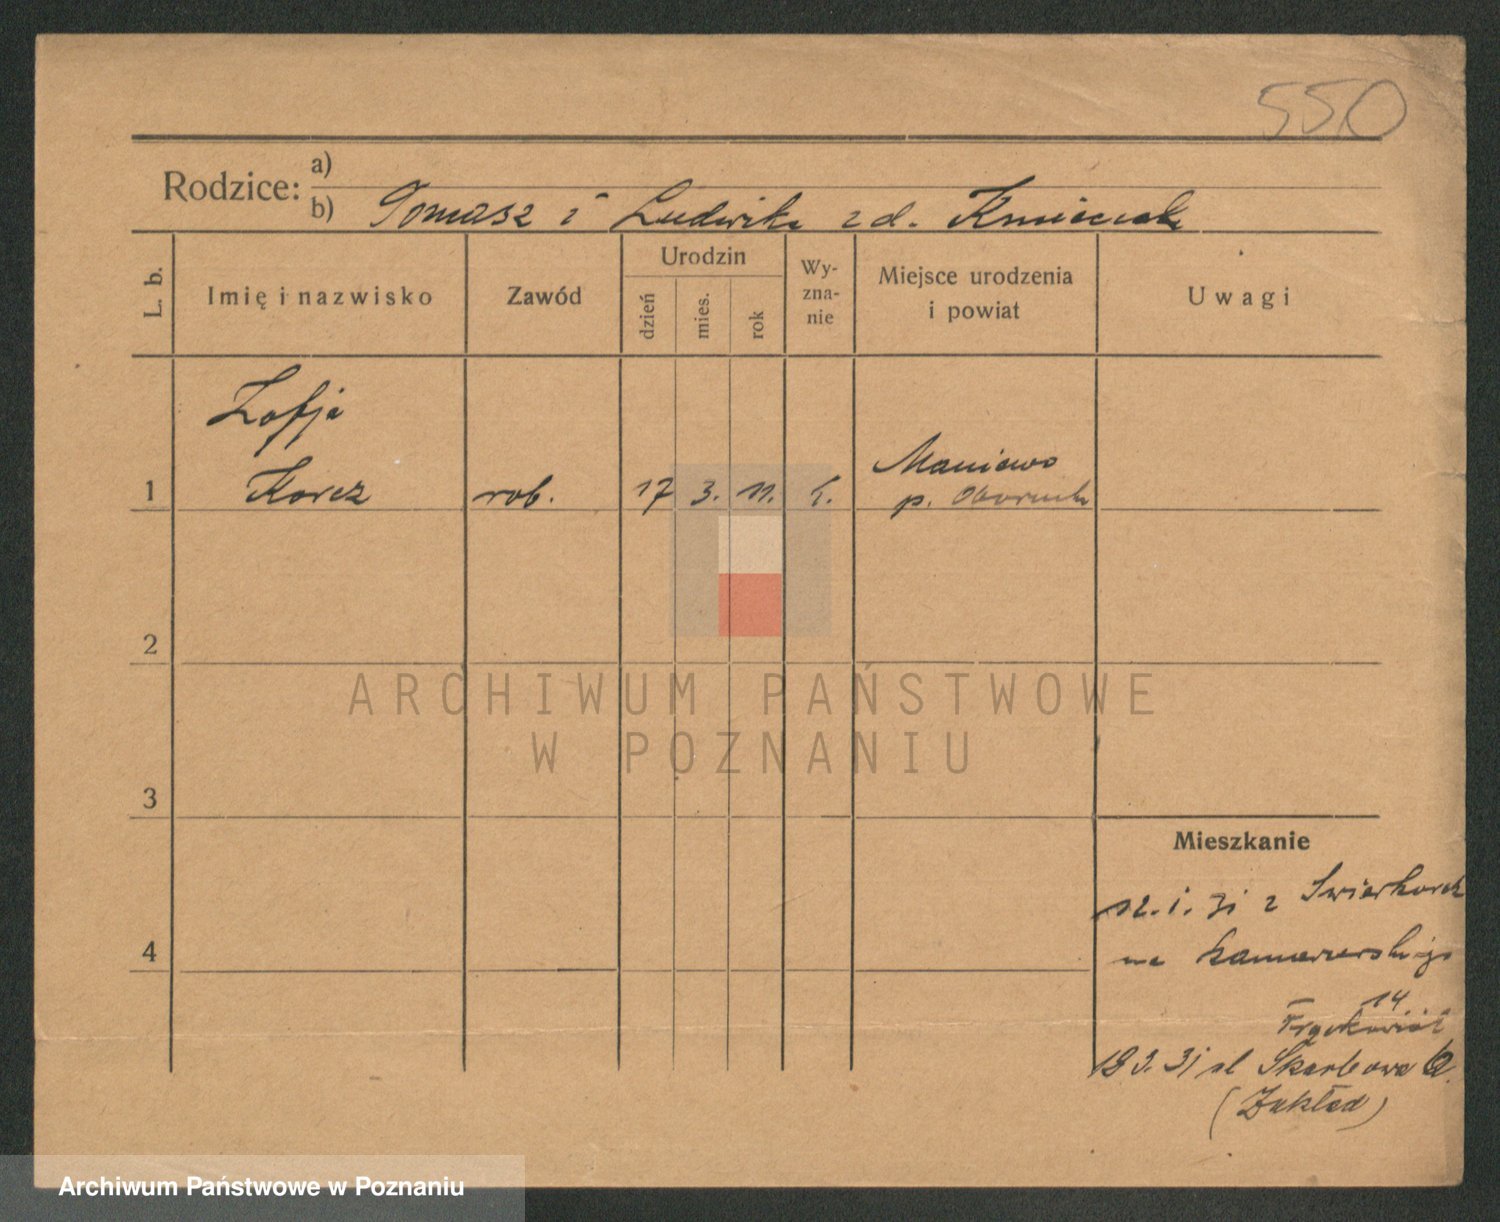 550
Rodzice: a)
b) Tomasz i Ludwika z d. Kmieciak
L. b.
Imię i nazwisko
Zawód
Urodzin
dzień
mies.
rok
Wy-
zna-
nie
Miejsce urodzenia
i powiat
Uwagi
Zofja
1 Korcz rob. 17 3. 11. k. Maniewo
p. Obornik
2
3
4
Mieszkanie
i. 31 z
na
14
18 3. 31 ul Skarbowa
(Zakład)
ARCHIWUM PAŃSTWOWE
W POZNANIU
Archiwum Państwowe w Poznaniu